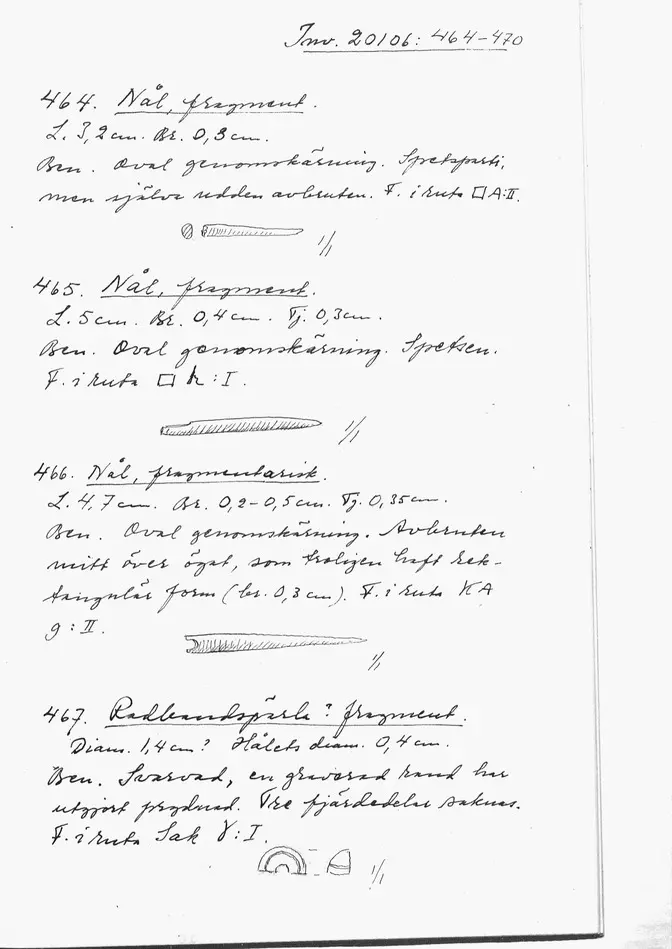 Inv. 20106: 464-470
464. Nål, fragment.
L. 3,2 cm. Br. 0,3 cm.
Ben. Oval genomskärning. Spetsparti,
men själva udden avbruten. F. i ruta □ A:II.
1/1
465. Nål, fragment.
L. 5 cm. Br. 0,4 cm. Tj. 0,3 cm.
Ben. Oval genomskärning. Spetsen.
F. i ruta □ : I.
1/1
466. Nål, fragmentarisk.
L. 4,7 cm. Br. 0,2-0,5 cm. Tj. 0,35 cm.
Ben. Oval genomskärning. Avbruten
mitt över ögat, som troligen haft rek-
tangulär form (br. 0,3 cm). F. i ruta KA
g : II.
1/1
467. Radbandspärla? fragment.
Diam. 1,4 cm? Hålets diam. 0,4 cm.
Ben. Svarvad, en graverad rand har
utgjort prydnad. Tre fjärdedelar saknas.
F. i ruta Sak γ : I.
1/1